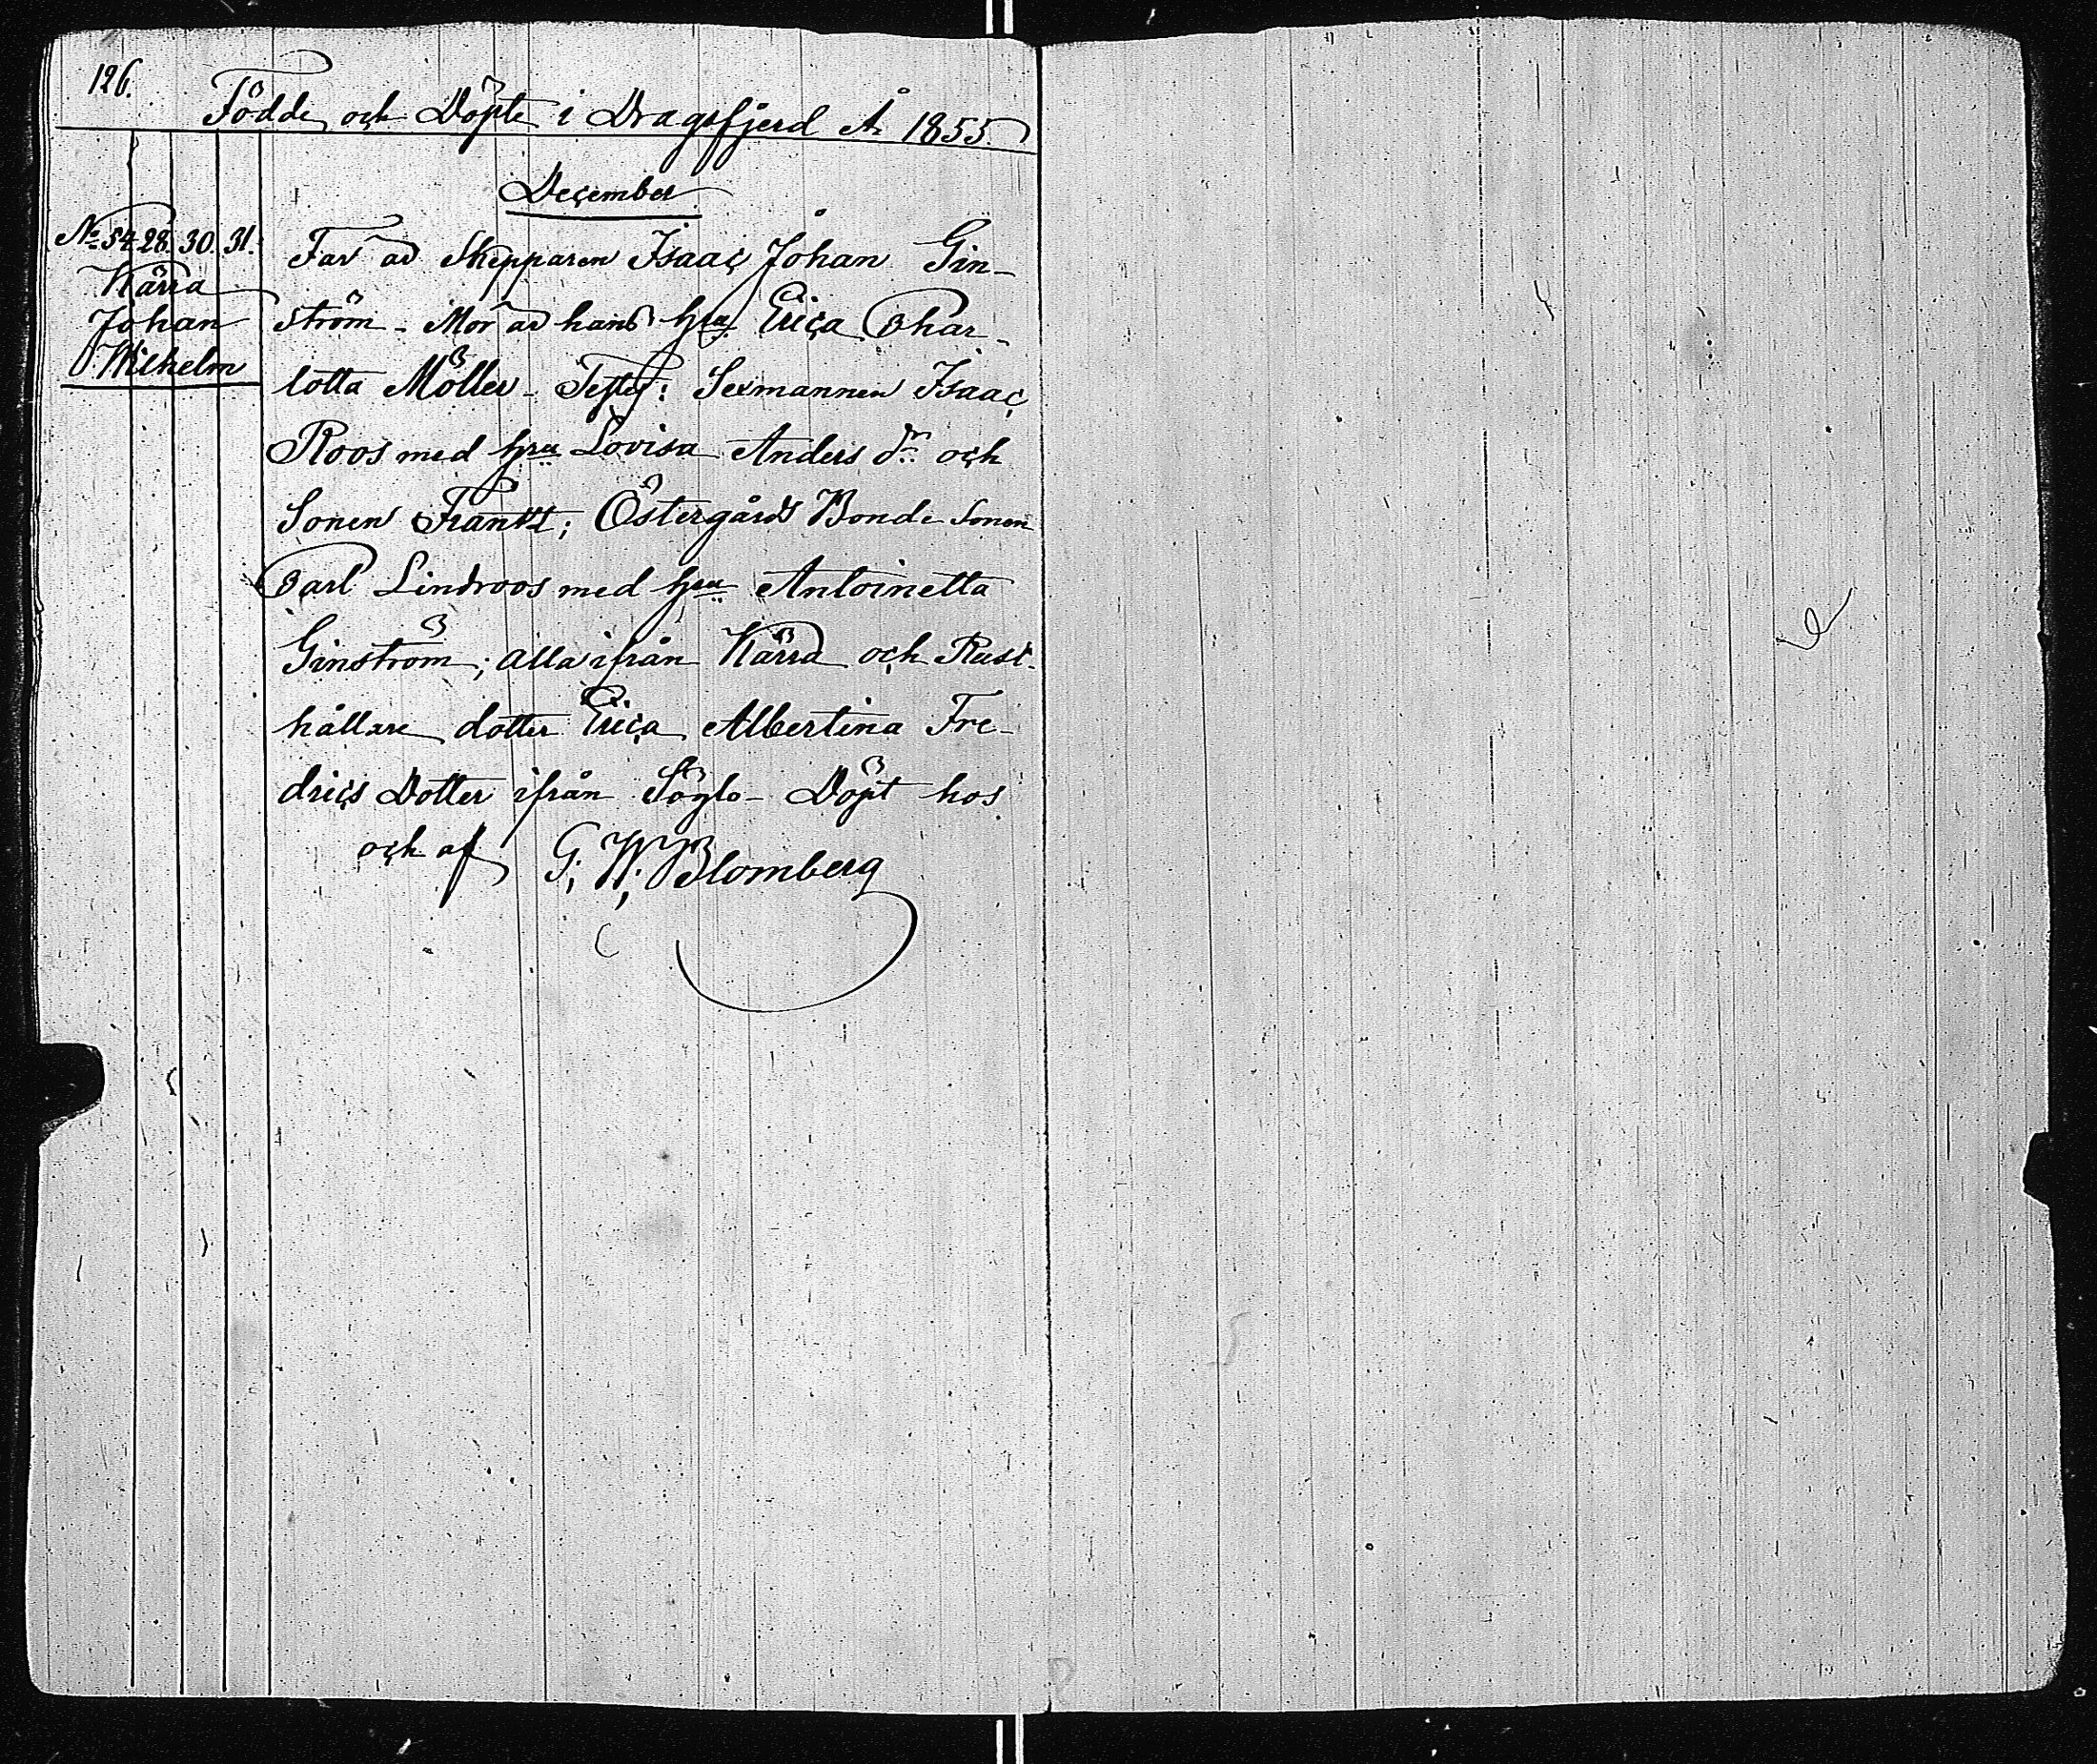 126.
Födde och Döpte i Dragsfjerd År 1855.
December
No 54. 28. 30. 31.
Kärra
Johan
Wilhelm
Far är Skepparen Isaac Johan Gin-
ström - Mor är hans hru Erica Char-
lotta Möller - Testes: Sexmannen Isaac
Roos med hru Lovisa Anders dr och
Sonen Frantz; Östergårds Bonde Sonen
Carl Lindroos med hru Antoinetta
Ginström; alla ifrån Kärra och Rust-
hållare dotter Erica Albertina Fre-
drics Dotter ifrån Söglo - Döpt hos
och af G; W; Blomberg